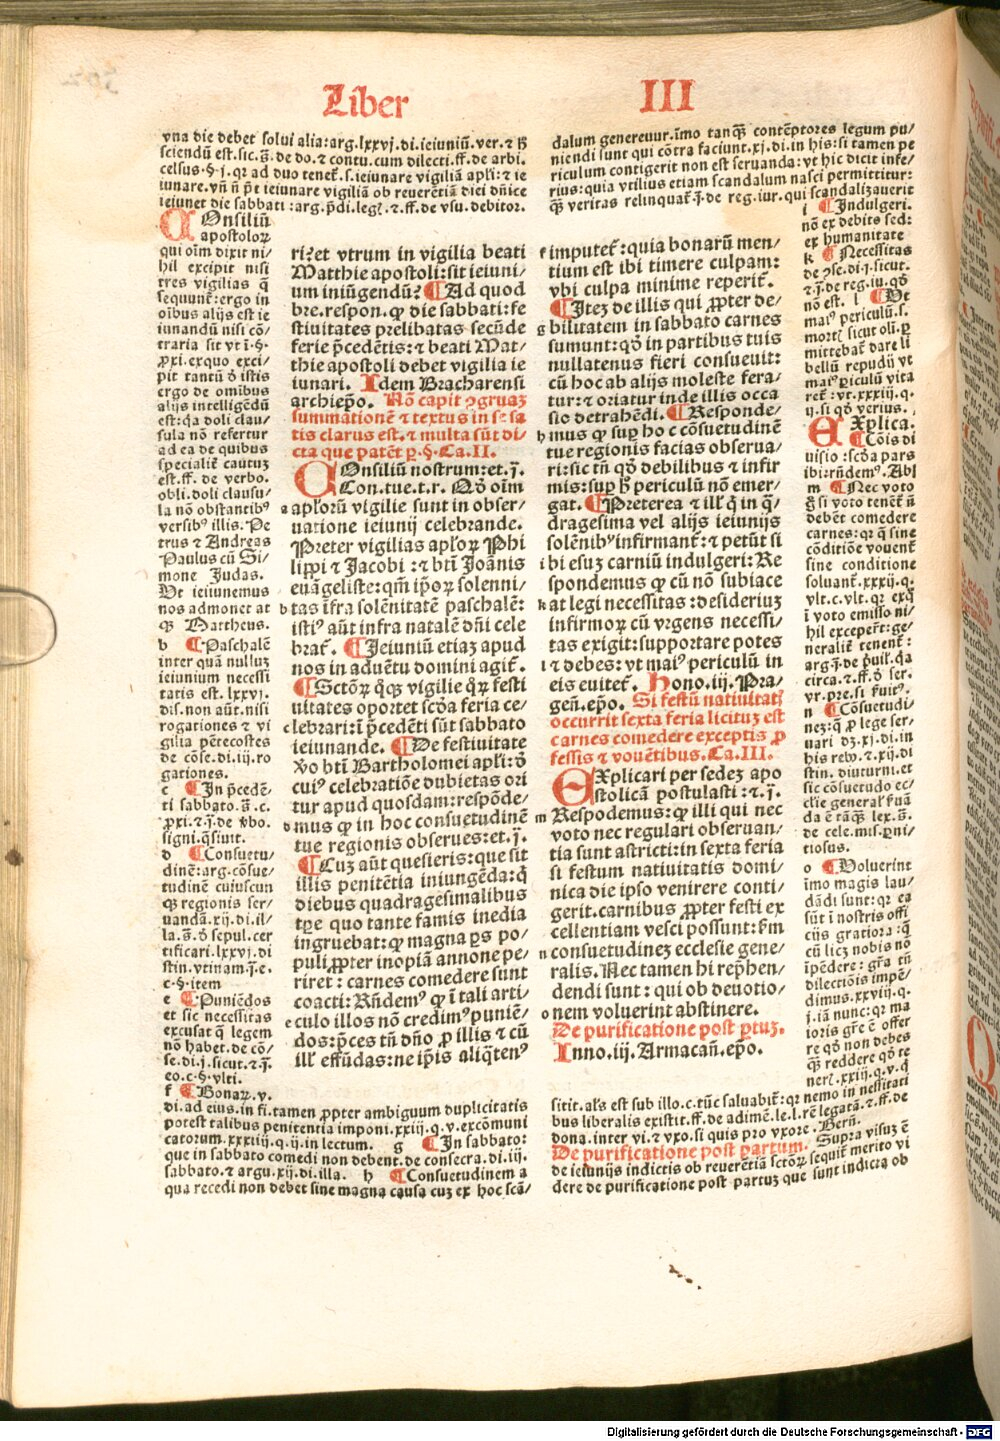 Liber III
vna die debet solui alia: arg. lxxvj. di. ieiuniū. ver. ⁊ ꝗ
sciendū est. sic. ꝯ̄. de do. ⁊ contu. cum dilecti. ff. de arbi.
celsus. §. j. qr ad duo tenet̄. s. ieiunare vigiliā apl̄i: ⁊ ie
iunare. vñ ñ pōt ieiunare vigiliā ob reuerētiā diei dñice
ieiunet die sabbati: arg. p̄di. leg. ⁊ ff. de vsu. debitor.
COnsiliū
apostoloꝝ
qui oīm dixit ni/
hil excipit nisi
tres vigilias q̄
sequunt̄: ergo in
oībus alijs est ie
iunandū nisi cō/
traria sit vt ī. §.
ꝓxi. ex quo exci/
pit tantū ō istis
ergo de omībus
alijs intelligēdū
est: qa doli clau/
sula nō refertur
ad ea de quibus
specialit̄ cautuz
est. ff. de verbo.
obli. doli clausu/
la nō obstantibꝰ
versibꝰ illis. Pe
trus ⁊ Andreas
Paulus cū Si/
mone Judas.
Ut ieiunemus
nos admonet at
qꝫ Mattheus.
b ¶Paschalē
inter quā nulluz
ieiunium necessi
tatis est. lxxvj.
dis. non aūt. nisi
rogationes ⁊ vi
gilia pētecostes
de cōse. di. iij. ro
gationes.
c ¶In p̄cedē/
ti sabbato. ꝯ̄. c.
ꝓxi. ⁊ ī. de v̄bo.
signi. q̄siuit.
d ¶Consuetu/
dinē: arg. cōsue/
tudinē cuiuscun
qꝫ regionis ser/
uandā. xij. di. il/
la. ꝯ̄. ō sepul. cer
tificari. lxxvj. di
stin. vtinam. ī. e.
c. §. item
e ¶Puniēdos
et sic necessitas
excusat q̄ legem
nō habet. de cō/
se. di. j. sicut. ⁊ ī.
eo. c. §. vlti.
f ¶Bonaꝝ. v.
di. ad eius. in fi. tamen ꝓpter ambiguum duplicitatis
potest talibus penitentia imponi. xxiij. q. v. excōmuni
catorum. xxxiij. q. ij. in lectum. g ¶In sabbato:
que in sabbato comedi non debent. de consecra. di. iij.
sabbato. ⁊ argu. xij. di. illa. h ¶Consuetudinem a
qua recedi non debet sine magna causa cuz ex hoc scā/
ri?et vtrum in vigilia beati
Matthie apostoli: sit ieiuni/
um iniūgendū? ¶Ad quod
bre. respon. qꝙ die sabbati: fe
stiuitates prelibatas secūde
ferie p̄cedētis: ⁊ beati Mat/
thie apostoli debet vigilia ie
iunari. Idem Bracharensi
archiep̄o. Nō capit ꝯgruaz
summationē ⁊ textus in se sa
tis clarus est. ⁊ multa sūt di/
cta que patēt ꝑ. §. Ca. II.
COnsiliū nostrum: et. j̄.
Con. tue. t. r. Qō oīm
a apl̄orū vigilie sunt in obser/
uatione ieiunij celebrande.
Preter vigilias apl̄oꝝ Phi
lippi ⁊ Jacobi: ⁊ btī Joānis
euāgeliste: qm̄ ip̄oꝝ solenni/
b tas īfra solēnitatē paschalē:
istiꝰ aūt infra natalē dñi cele
brat̄. ¶Ieiuniū etiaz apud
nos in aduētu domini agit̄.
¶Sctōꝝ q̄qꝫ vigilie q̄ꝝ festi
uitates oportet scd̄a feria ce/
c lebrari: ī p̄cedēti sūt sabbato
ieiunande. ¶De festiuitate
v̄o btī Bartholomei apl̄i: ō
cuiꝰ celebratiōe dubietas ori
tur apud quosdam: respōde/
d mus qꝙ in hoc consuetudinē
tue regionis obserues: et. j̄.
¶Cuz aūt quesieris: que sit
illis penitētia iniungēda: q̄
diebus quadragesimalibus
tp̄e quo tante famis inedia
ingruebat: qꝙ magna ps po/
puli ꝓpter inopiā annone pe/
riret: carnes comedere sunt
coacti: Rn̄demꝰ qꝙ ī tali arti/
e culo illos nō credimꝰ puniē/
dos: p̄ces tn̄ dño ꝓ illis ⁊ cū
ill̄ effūdas: ne ip̄is aliq̄tenꝰ
dalum genereuur. īmo tanqꝫ contēptores legum pu/
niendi sunt qui cōtra faciunt. xj. di. in his: si tamen pe
riculum contigerit non est seruanda: vt hic dicit infe/
rius: quia vtilius etiam scandalum nasci permittitur:
qꝫ veritas relinquat̄. ī. de reg. iur. qui scandalizauerit
f imputet̄: quia bonarū men/
tium est ibi timere culpam:
vbi culpa minime reperit̄.
¶Itez de illis qui ꝓpter de/
g bilitatem in sabbato carnes
sumunt: qō in partibus tuis
nullatenus fieri consueuit:
cū hoc ab alijs moleste fera/
tur: ⁊ oriatur inde illis occa
sio detrahēdi. ¶Responde/
h mus qꝙ suꝑ hoc cōsuetudinē
tue regionis facias obserua/
ri: sic tn̄ qō debilibus ⁊ infir
mis: suꝑ ꝗ periculū nō emer/
gat. ¶Preterea ⁊ ill̄ q̄ in q̄/
dragesima vel alijs ieiunijs
solēnibꝰ infirmant̄: ⁊ petūt si
i bi esuz carniū indulgeri: Re
spondemus qꝙ cū nō subiace
k at legi necessitas: desideriuz
infirmoꝝ cū vrgens necessi/
tas exigit: supportare potes
l ⁊ debes: vt maiꝰ periculū in
eis euitet̄. Hono. iij. Pra/
gen̄. ep̄o. Si festū natiuitat̄
occurrit sexta feria licituz est
carnes comedere exceptis ꝓ
fessis ⁊ vouētibus. Ca. III.
EXplicari per sedez apo
stolicā postulasti: ⁊. j̄.
m Respodemus: qꝙ illi qui nec
voto nec regulari obseruan/
tia sunt astricti: in sexta feria
si festum natiuitatis domi/
nica die ipso venirere conti/
gerit. carnibus ꝓpter festi ex
cellentiam vesci possunt: s̄m
n consuetudinez ecclesie gene/
ralis. Nec tamen hi rep̄hen/
dendi sunt: qui ob deuotio/
o nem voluerint abstinere.
De purificatione post ptuz.
Inno. iij. Armacan̄. ep̄o.
i ¶Indulgeri.
nō ex debito sed:
ex humanitate
k ¶Necessitas
de ꝯse. di. j. sicut.
⁊ ī. de reg. iu. qō
nō est. l ¶Ut
maiꝰ periculū. s.
mort̄ sicut oli. ꝑ
mittebat̄ dare li
bellū repudij vt
maiꝰ ꝑiculū vita
ret̄: vt. xxxiij. q.
ij. si qō verius.
EXplica.
¶Cōis di
uisio: scd̄a pars
ibi: rn̄demꝰ. Abl
m ¶Nec voto
q̄ si voto tenet̄ n̄
debēt comedere
carnes: qr q̄ sine
cōditiōe vouent̄
sine conditione
soluant̄. xxxij. q.
vlt. c. vlt. qr exq̄
ī voto emisso ni/
hil exceper̄t: ge/
neralit̄ tenent̄:
arg. ī. de p̄uil. q̄a
circa. ⁊ ff. ō ser.
vr. pre. si s̄uitꝰ.
n ¶Cōsuetudi/
nez: q̄ ꝓ lege ser/
uari dꝫ. xj. di. in
his reb. ⁊ xij. di
stin. diuturni. et
sic cōsuetudo ec/
clīe general̄ s̄uā
da ē tāqꝫ lex. ꝯ̄.
de cele. mis. ꝑni/
tiosus.
o ¶Voluerint
īmo magis lau/
dādi sunt: qr ea
sūt ī nostris offi
cijs gratiora: q̄
cū licꝫ nobis nō
īpēdere: gr̄a tn̄
dilectiōis impē/
dimus. xxviij. q.
j. iā nunc: qr ma
ioris gr̄e ē offer
re qō non debes
qꝫ reddere qō te
neri. xxiij. q. v. q̄
sitit. al̄s est sub illo. c. tūc saluabit̄: qr nemo in necessitati
bus liberalis existit. ff. de adimē. le. l. rē legatā. ⁊ ff. de
dona. inter vi. ⁊ vxo. si quis pro vxore. Bern̄.
De purificatione post partum. Supra visuz ē
de ieiunijs indictis ob reuerētiā sctōꝝ sequit̄ merito vi
dere de purificatione post partuz que sunt indicta ob
Digitalisierung gefördert durch die Deutsche Forschungsgemeinschaft - DFG